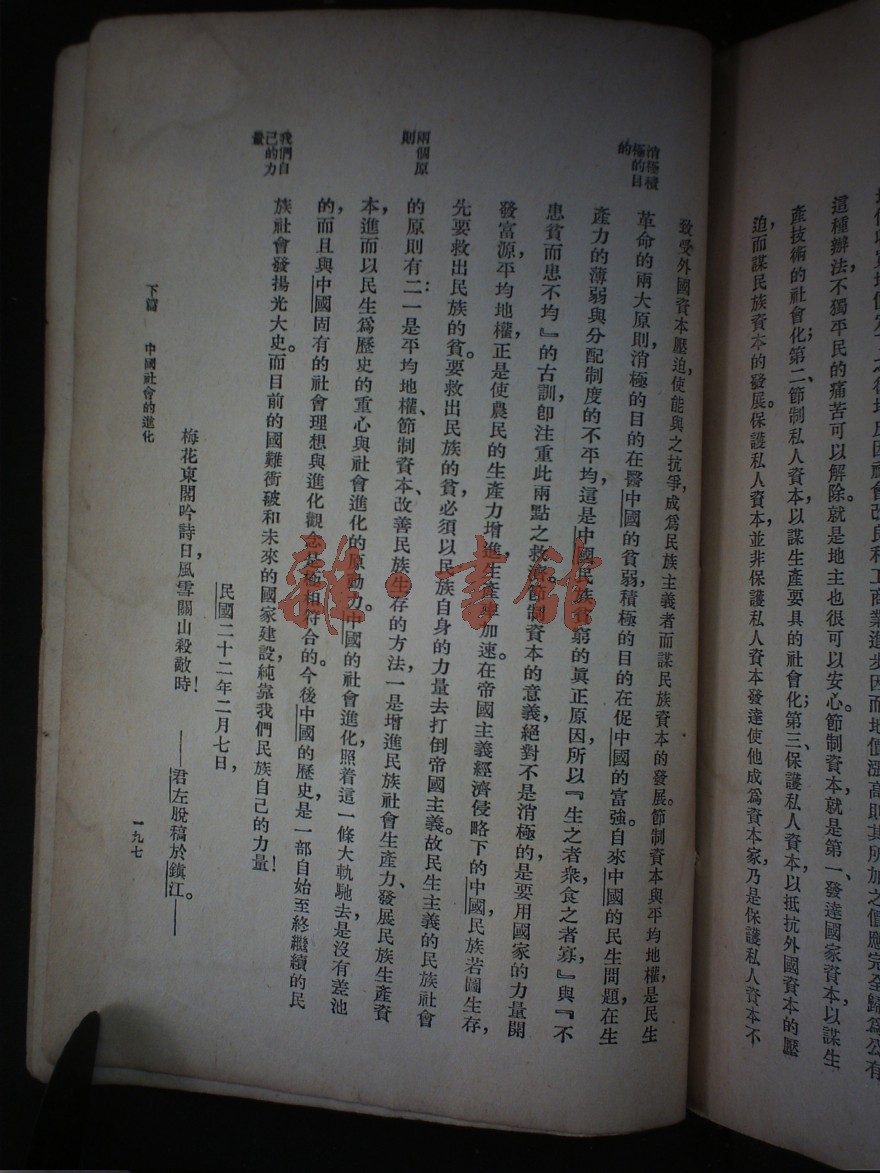 這種辦法，不獨平民的痛苦可以解除。就是地主也很可以安心。節制資本，就是第一、發達國家資本，以謀生
產技術的社會化；第二、節制私人資本，以謀生產要具的社會化；第三、保護私人資本，以抵抗外國資本的壓
迫，而謀民族資本的發展。保護私人資本，並非保護私人資本發達使他成爲資本家，乃是保護私人資本不
致受外國資本壓迫，使能與之抗爭，成爲民族主義者而謀民族資本的發展。節制資本與平均地權，是民生
消極積
極的目
的
革命的兩大原則，消極的目的在醫中國的貧弱，積極的目的在促中國的富強。自來中國的民生問題，在生
產力的薄弱與分配制度的不平均，這是中國民族貧窮的眞正原因，所以『生之者衆，食之者寡，』與『不
患貧而患不均』的古訓，卽注重此兩點之救濟。節制資本的意義，絕對不是消極的，是要用國家的力量開
發富源，平均地權，正是使農民的生產力增進，生產率加速。在帝國主義經濟侵略下的中國，民族若圖生存，
先要救出民族的貧。要救出民族的貧，必須以民族自身的力量去打倒帝國主義。故民生主義的民族社會
兩個原
則
的原則有二：一是平均地權、節制資本、改善民族生存的方法，一是增進民族社會生產力、發展民族生產資
本，進而以民生爲歷史的重心與社會進化的原動力。中國的社會進化，照着這一條大軌馳去，是沒有差池
的，而且與中國固有的社會理想與進化觀念是極相符合的。今後中國的歷史，是一部自始至終繼續的民
我們自
己的力
量
族社會發揚光大史。而目前的國難衝破和未來的國家建設，純靠我們民族自己的力量！
民國二十二年二月七日，
梅花東閣吟詩日，風雪關山殺敵時！
——君左脫稿於鎮江。——
下篇 中國社會的進化
一九七
雜·書館